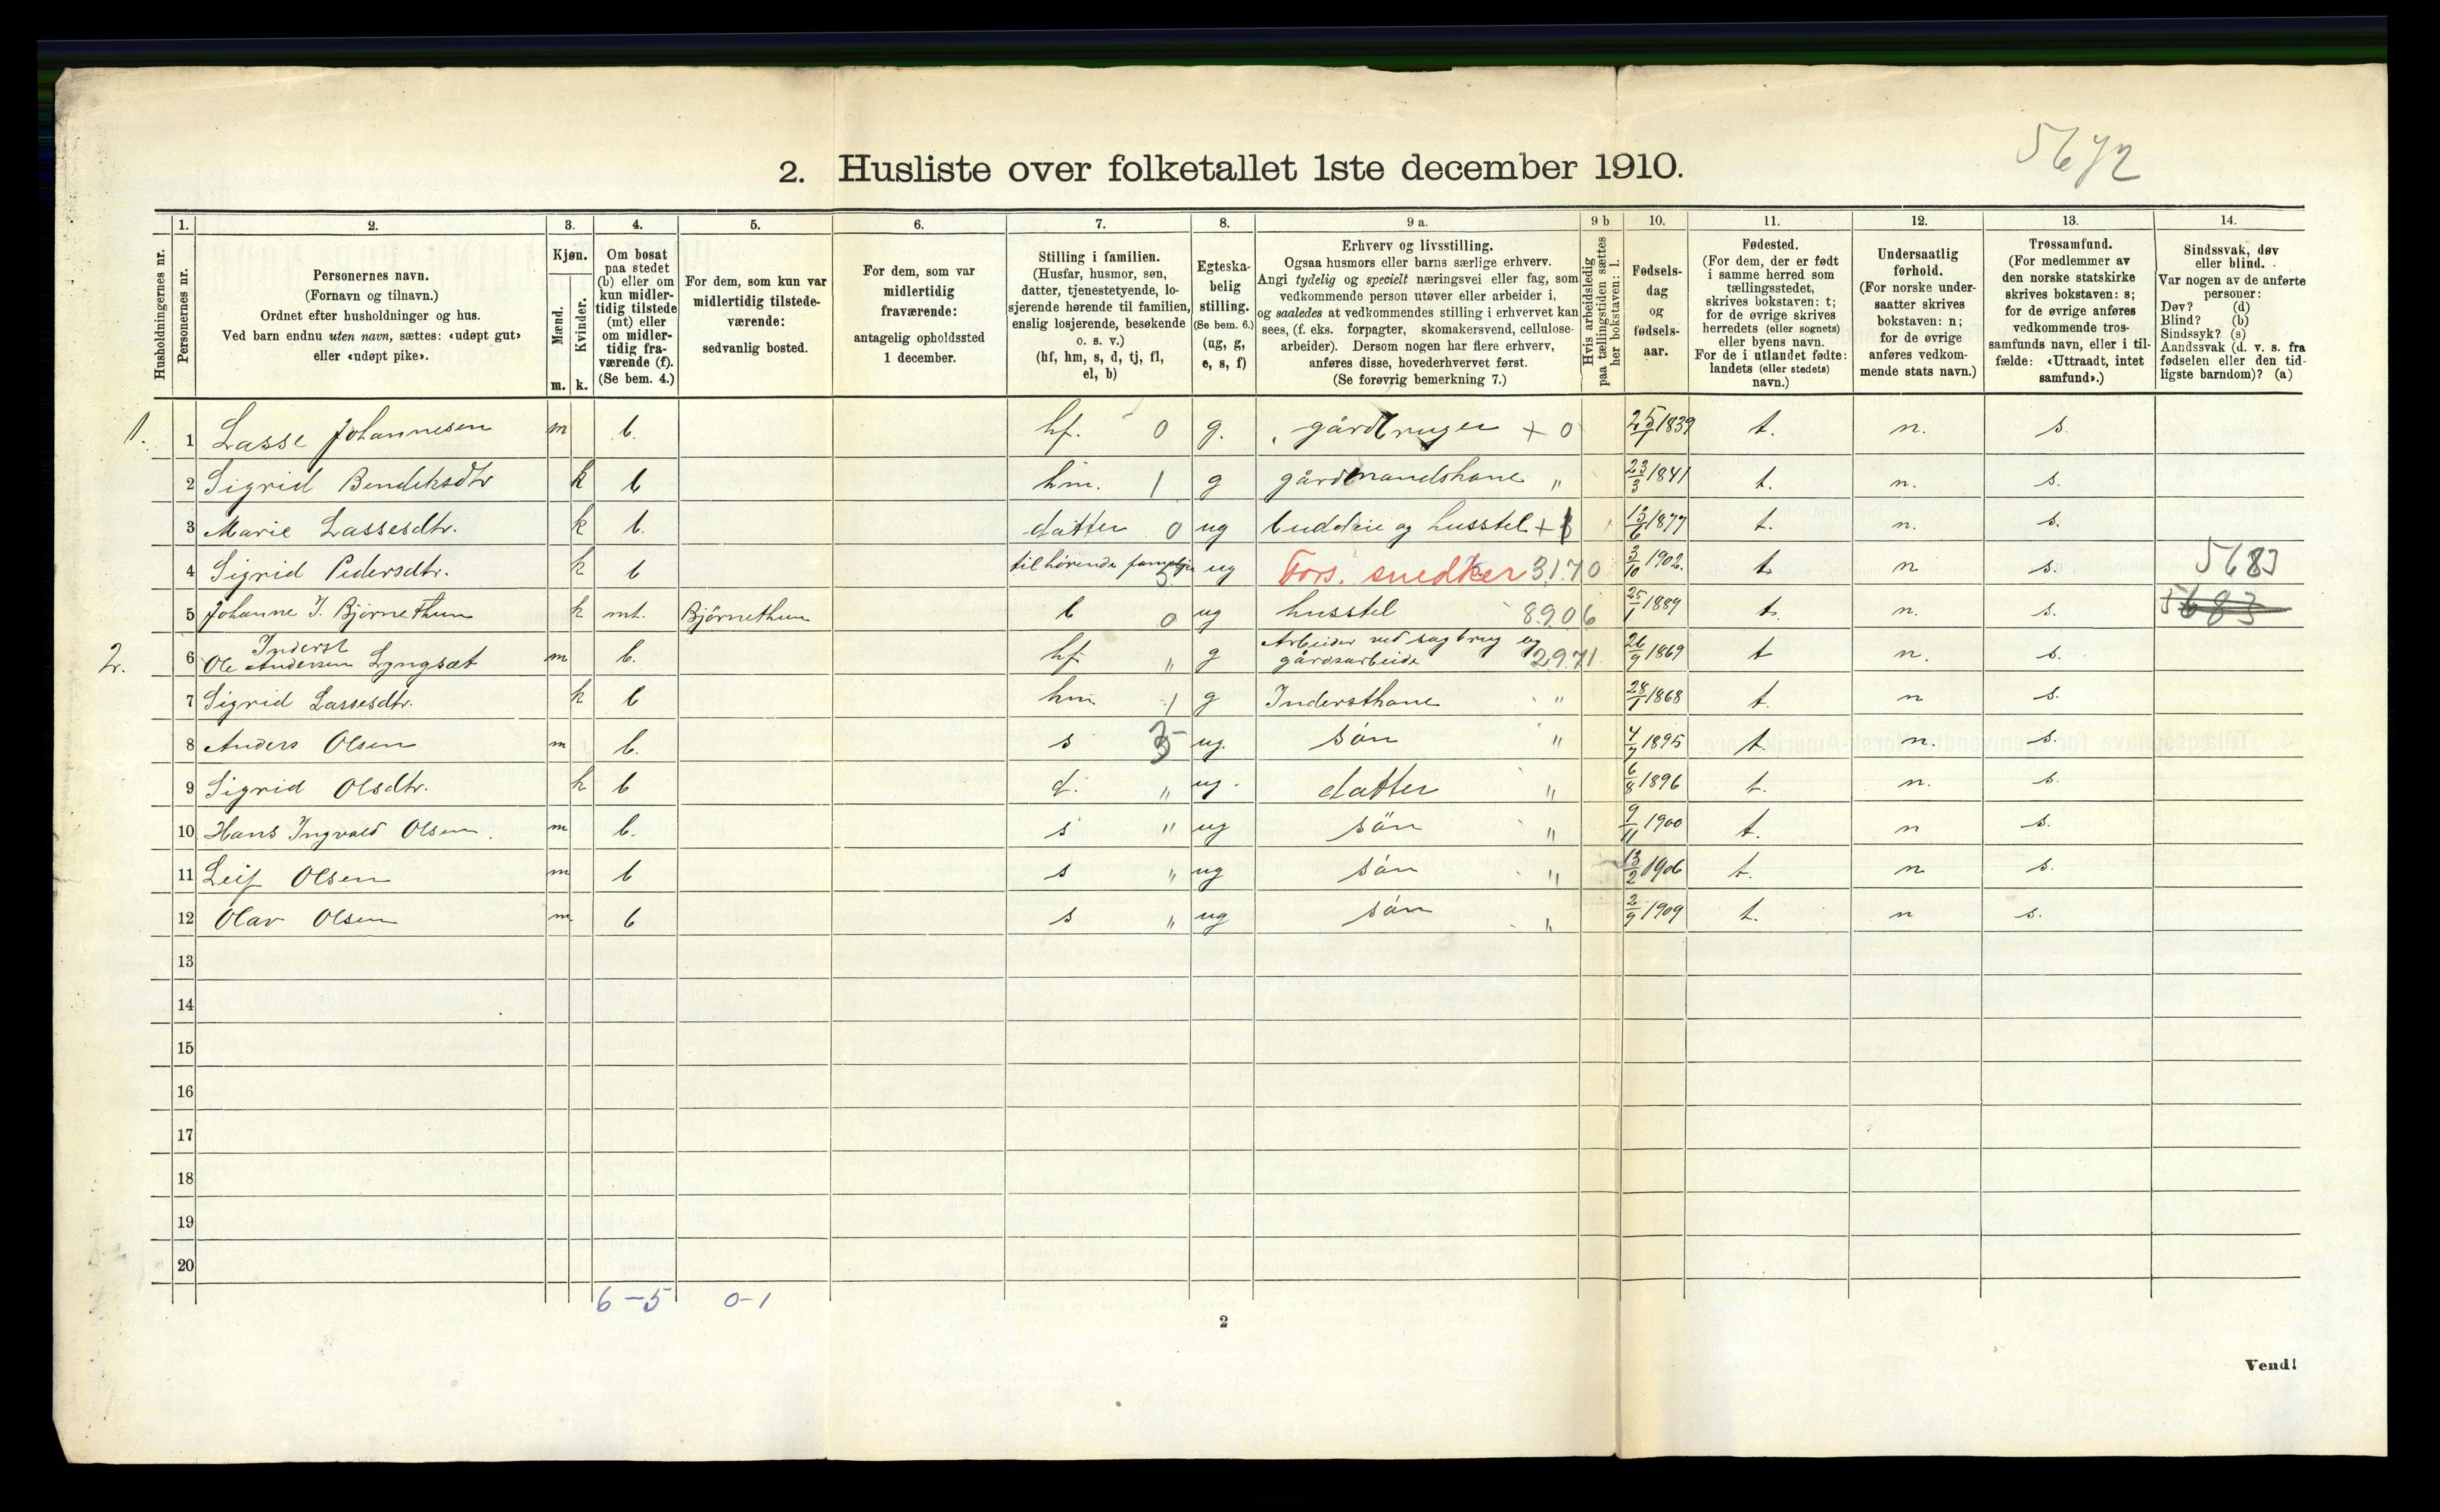 5672
2. Husliste over folketallet 1ste december 1910.
Husholdningernes nr.
1.
Personernes nr.
2.
Personernes navn.
(Fornavn og tilnavn.)
Ordnet efter husholdninger og hus.
Ved barn endnu uten navn, sættes: «udøpt gut»
eller «udøpt pike».
3.
Kjøn.
Mænd.
Kvinder.
m. k.
4.
Om bosat
paa stedet
(b) eller om
kun midler-
tidig tilstede
(mt) eller
om midler-
tidig fra-
værende (f).
(Se bem. 4.)
5.
For dem, som kun var
midlertidig tilstede-
værende:
sedvanlig bosted.
6.
For dem, som var
midlertidig
fraværende:
antagelig opholdssted
1 december.
7.
Stilling i familien.
(Husfar, husmor, søn,
datter, tjenestetyende, lo-
sjerende hørende til familien,
enslig losjerende, besøkende
o. s. v.)
(hf, hm, s, d, tj, fl,
el, b)
8.
Egteska-
belig
stilling.
(Se bem. 6.)
(ug, g,
e, s, f)
9 a.
Erhverv og livsstilling.
Ogsaa husmors eller barns særlige erhverv.
Angi tydelig og specielt næringsvei eller fag, som
vedkommende person utøver eller arbeider i,
og saaledes at vedkommendes stilling i erhvervet kan
sees, (f. eks. forpagter, skomakersvend, cellulose-
arbeider). Dersom nogen har flere erhverv,
anføres disse, hovederhvervet først.
(Se forøvrig bemerkning 7.)
9 b
Hvis arbeidsledig
paa tællingstiden sættes
her bokstaven: l.
10.
Fødsels-
dag
og
fødsels-
aar.
11.
Fødested.
(For dem, der er født
i samme herred som
tællingsstedet,
skrives bokstaven: t;
for de øvrige skrives
herredets (eller sognets)
eller byens navn.
For de i utlandet fødte:
landets (eller stedets)
navn.)
12.
Undersaatlig
forhold.
(For norske under-
saatter skrives
bokstaven: n;
for de øvrige
anføres vedkom-
mende stats navn.)
13.
Trossamfund.
(For medlemmer av
den norske statskirke
skrives bokstaven: s;
for de øvrige anføres
vedkommende tros-
samfunds navn, eller i til-
fælde: «Uttraadt, intet
samfund».)
14.
Sindssvak, døv
eller blind.
Var nogen av de anførte
personer:
Døv? (d)
Blind? (b)
Sindssyk? (s)
Aandssvak (d. v. s. fra
fødselen eller den tid-
ligste barndom)? (a)
1. 1 Lasse Johannesen m b. hf. 0 g. gårdbruger + 0 25/1 1839 t. n. s.
2 Sigrid Bendeksdtr k b hm. 1 g gårdmandskone " 23/3 1841 t. n. s.
3 Marie Lassesdtr. k b. datter 0 ug buddeie og husstel + 13/6 1877 t. n. s.
4 Sigrid Pedersdtr. k b tilhørende familje 5 ug Fors. snedker 3170 3/10 1902. t. n s. 5683
5 Johanne J. Bjørnethun k mt. Bjørnethun b 0 ug husstel 8906 25/1 1889 t. n. s. 5683
Inderst
2. 6 Ole Andersen Lyngsæt m b. hf " g Arbeider ved sagbrug og
gårdsarbeide 2971 26/9 1869 t n. s.
7 Sigrid Lassesdtr. k b hm 1 g Inderstkone " 28/1 1868 t. n s.
8 Anders Olsen m b. s 3 ug. søn " 4/7 1895 t. n. s.
9 Sigrid Olsdtr. k b d. " ug. datter " 6/8 1896 t. n. s.
10 Hans Ingvald Olsen. m b. s " ug søn " 9/11 1900 t. n s.
11 Leif Olsen m b s " ug søn " 13/2 1906 t. n s.
12 Olav Olsen m. b s " ug søn " 2/9 1909 t. n s.
13
14
15
16
17
18
19
20
6-5 0-1
2
Vend!